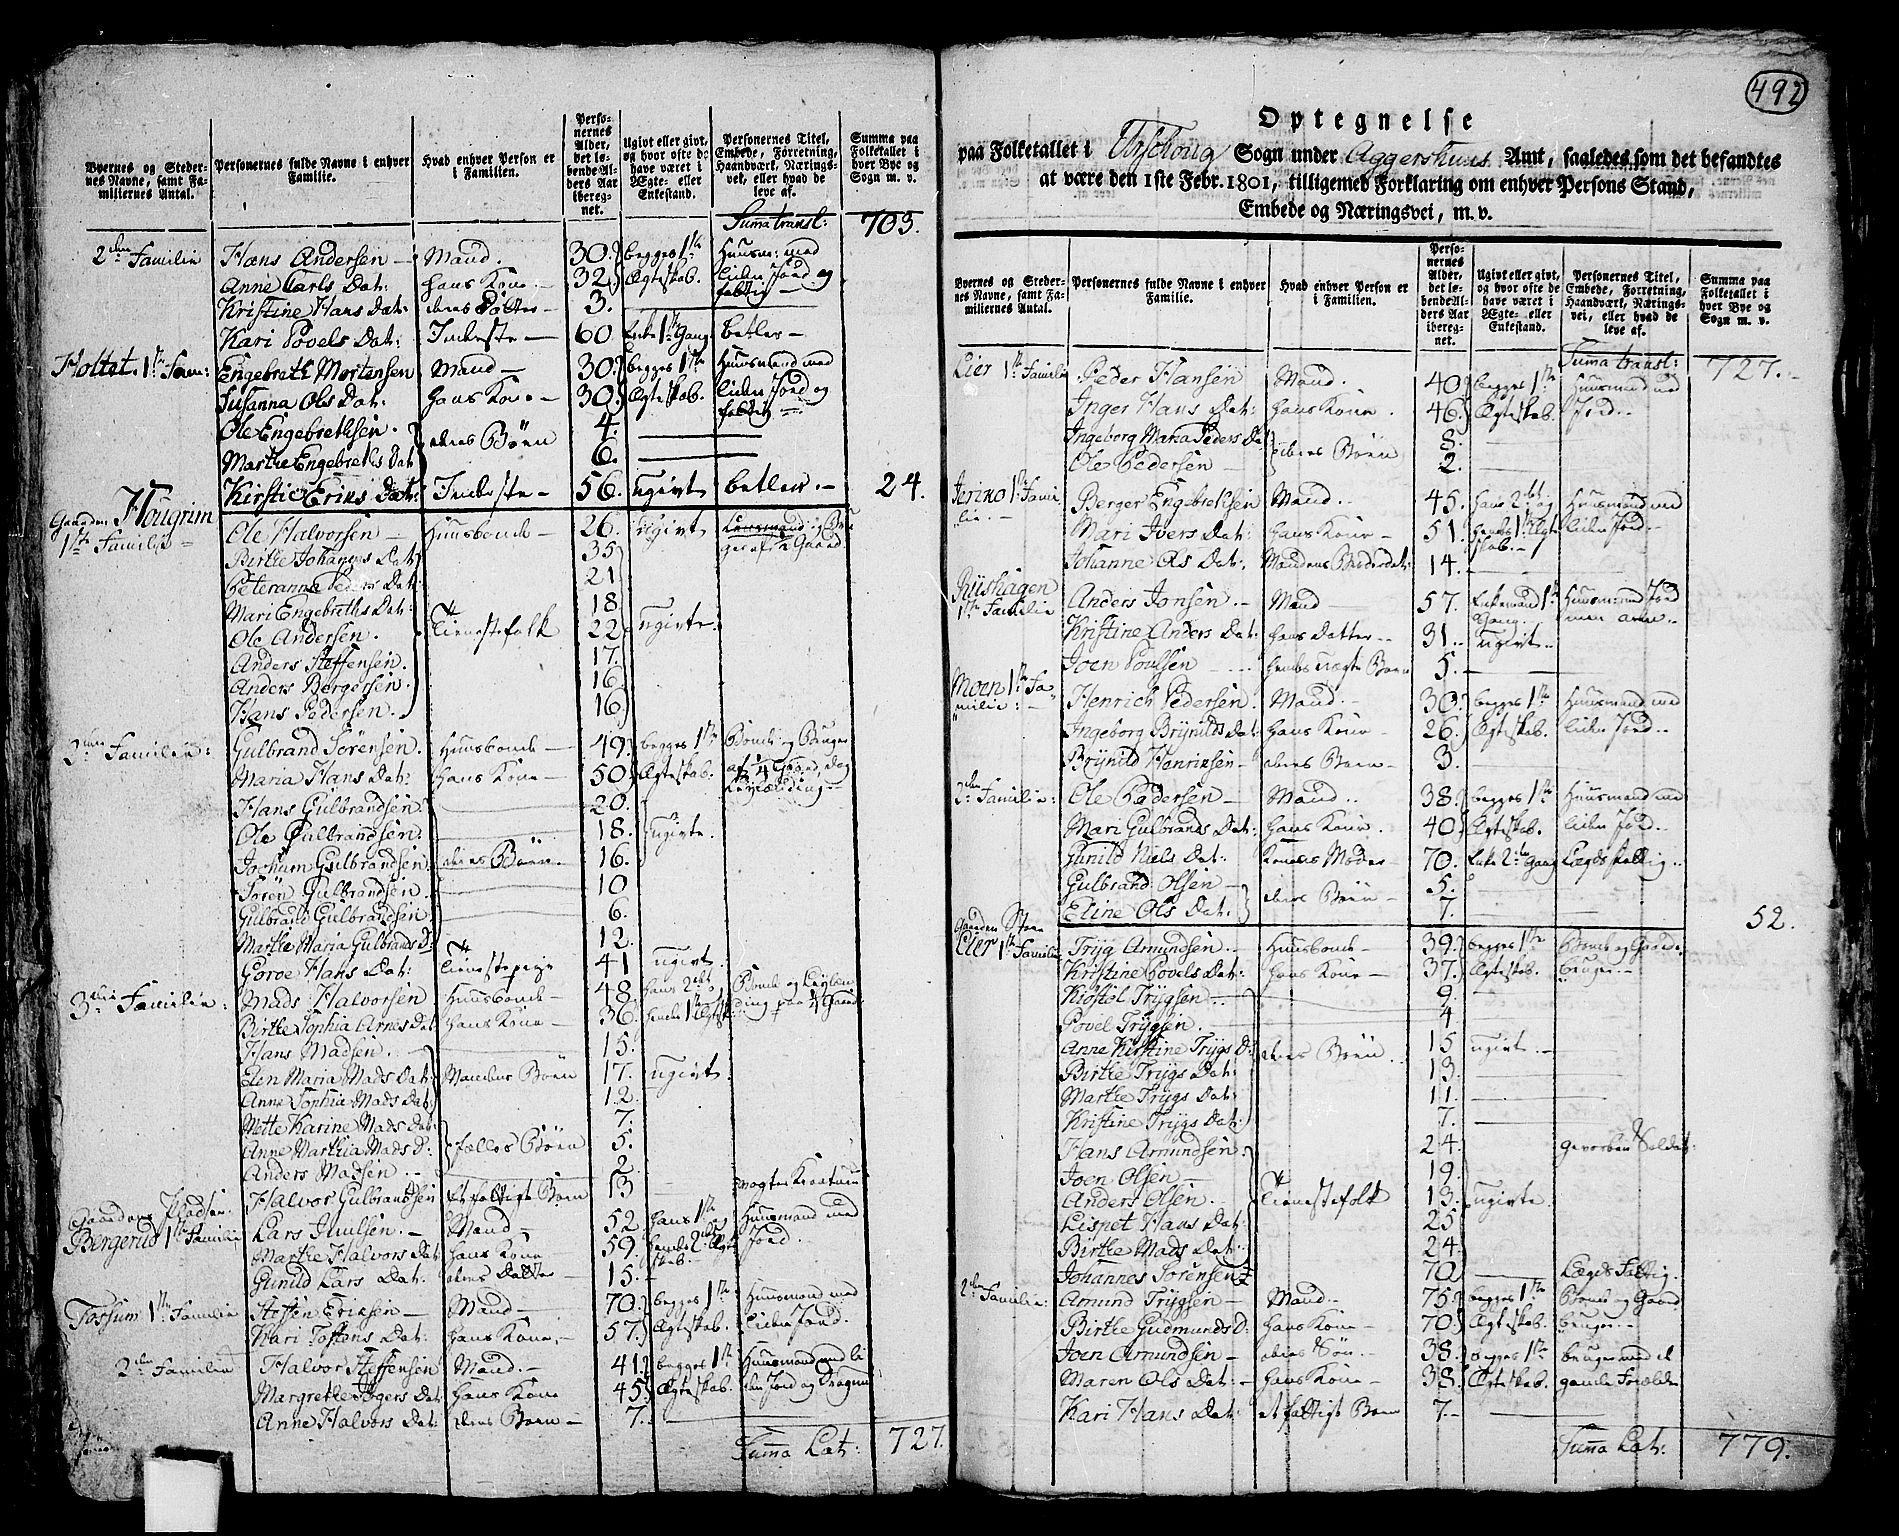 Byernes og Stedernes Navne, samt Familiernes Antal.
Personernes fulde Navne i enhver Familie.
Hvad enhver Person er i Familien.
Personernes Alder, det løbende Alders Aar iberegnet.
Ugivt eller givt, og hvor ofte de have været i Ægte- eller Enkestand.
Personernes Titel, Embede, Forretning, Haandværk, Næringsvei, eller hvad de leve af.
Summa paa Folketallet i hver Bye og Sogn m. v.
Suma transl: 703.
2den Familie Hans Andersen – Mand. 30. begge 1ste Huusm: med
Anne Carls Dat: hans Kone 32. Ægteskab. liden Jord og fattig
Kristine Hans Dat: deres Datter 3.
Kari Povels Dat: Inderste 60 Enke 1ste Gang betler
Holtet. 1ste Fam: Engebreth Mortensen Mand 30. begge 1ste Huusmand med
Susanna Ols Dat: hans Kone 30. Ægteskab. liden Jord og fattig
Ole Engebrethsen. 4.
deres Børn
Marthe Engebreths Dat 6.
Kirstie Eriks Dat: Inderste 56. ugivt betler 24.
Gaarden Hougrim
1ste Familie Ole Halvorsen Huusbonde 26. Ugivt
Birthe Johannes Dat 35
Peteranne Peders Dat: 21
Mari Engebreths Dat: 18
Ole Andersen. Tienestefolk 22 ugivte
Anders Steffensen. 17.
Anders Bergersen. 16
Hans Pedersen. 16
2den Familie: Gulbrand Sørensen. Huusbonde 49. begge 1ste Bonde og Bruger
Maria Hans Dat: hans Kone 50 Ægteskab. af 1/4 Gaard, og
Hans Gulbrandsen 20.
Ole Gulbrandsen 18. ugivte.
Jochum Gulbrandsen deres Børn 16.
Søren Gulbrandsen. 10
Gulbrand Gulbrandsen 6.
Marthe Maria Gulbrands D: 12.
Goroe Hans Dat: Tienestepige 41 ugivt
3die Familie: Mads Halvorsen Huusbonde 48 hans 2det og
Birthe Sophia Arnes Dat hans Kone 36.
Hans Madsen. 15.
Elen Maria Mads Dat: Mandens Børn 17. ugivt
Anne Sophia Mads Dat 12
Mette Karine Mads Dat 7.
Anne Marthia Mads D: fælles Børn 5.
Anders Madsen 2.
Halvor Gulbrandsen et fattigt Barn 13 vogter Kreaturer
Gaardens Pladser
Bergerud 1ste Familie Lars Juulsen. Mand 52. hans 1ste Huusmand med
Marthe Halvors Dat hans Kone 59. hendes 2det Ægteskab. Jord.
Gunild Lars Dat: deres Datter 15.
Fossum 1ste Familie Steffen Eriksen Mand 70. begge 1ste Huusmand med
Kari Toftens Dat: hans Kone 57. Ægteskab. liden Jord.
2den Familie Halvor Steffensen Mand. 41. begge 1ste Huusmand med li
Margrethe Aagers Dat hans Kone 45. Ægteskab. den Jord og Dragun
Anne Halvors Dat: deres Barn 7.
Suma Lat: 727.
492
Optegnelse
paa Folketallet i Urschoug Sogn under Aggershuus Amt, saaledes som det befandtes
at være den 1ste Febr. 1801, tilligemed Forklaring om enhver Persons Stand,
Embede og Næringsvei, m. v.
Byernes og Stedernes Navne, samt Familiernes Antal.
Personernes fulde Navne i enhver Familie.
Hvad enhver Person er i Familien.
Personernes Alder, det løbende Alders Aar iberegnet.
Ugivt eller givt, og hvor ofte de have været i Ægte- eller Enkestand.
Personernes Titel, Embede, Forretning, Haandværk, Næringsvei, eller hvad de leve af.
Summa paa Folketallet i hver Bye og Sogn m. v.
Suma transl: 727.
Lier 1ste Familie Peder Hansen Mand. 40. begge 1ste Huusmand med
Inger Hans Dat: hans Kone. 46. Ægteskab. Jord.
Ingeborg Maria Peders Da 8.
deres Børn
Ole Pedersen 2.
1ste Familie. Berger Engebrethsen Mand. 45. hans 2det og Huusmand med
Mari Ivers Dat: hans Kone 51. hendes 1ste Ægteskab. liden Jord.
Johanne Ols Dat: Mandens Broderdat: 14.
Riishagen
1ste Familie Anders Jonsen. Mand 57. Enkemand 1ste Gang. Huusmand Jord
Kristine Anders Dat: hans Datter 31. ugivt
Joen Poulsen hendes uægte Barn 5.
Moen 1ste Familie: Henrich Pedersen. Mand. 30. begge 1ste Huusmand med
Ingeborg Brynilds Dat: hans Kone 26. Ægteskab. liden Jord.
Brynild Henriksen deres Barn 3.
2den Familie: Ole Pedersen Mand. 38. begge 1ste Huusmand med
Mari Gulbrands Dat: hans Kone. 40. Ægteskab. liden Jord.
Gunild Niels Dat: Konens Moder 70. Enke 2den Gang Lægdsfattig
Gulbrand Olsen 5.
deres Børn
Eline Ols Dat: 7. 52.
Gaarden Store
Lier 1ste Familie Tryg Amundsen. Huusbonde 39. begge 1ste Bonde og Gaard
Kristine Povels Dat: hans Kone 37. Ægteskab. bruger
Kiøstel Trygsen 9.
Povel Trygsen. 4
Anne Kirstine Trygs D: deres Børn 15 ugivt
Birthe Trygs Dat: 13.
Marthe Trygs Dat: 11.
Kristine Trygs Dat: 7.
Hans Amundsen 24 gevorben Soldat:
Joen Olsen 19.
Anders Olsen. Tienestefolk 13. ugivte.
Lispet Hans Dat: 25
Birthe Mads Dat: 24.
Johannes Sørensen 70 Lægds Fattig.
2den Familie: Amund Trygsen Mand 75. begge 1ste Bonde og Gaard
Birthe Gudmunds D: hans Kone 70 Ægteskab. bruger
Joen Amundsen deres Søn 38. begge 1ste bruger med de
Maren Ols Dat: hans Kone 38. Ægteskab. gamle Forældre
Kari Hans Dat: et fattigt Barn 7.
Suma Lat: 779.